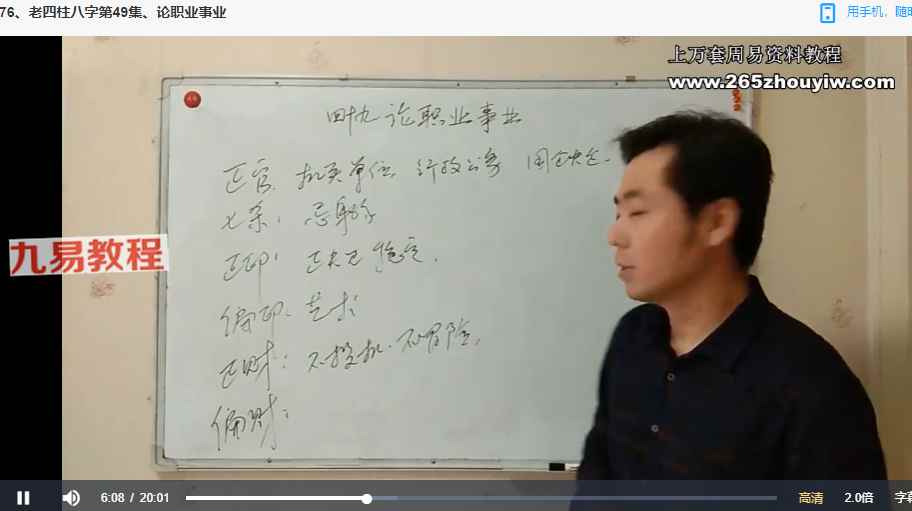 76、老四柱八字第49集、论职业事业
用手机，随时
上万套周易资料教程
www.265zhouyiw.com
四十九 论职业事业
正官: 机关单位 行政公务 国企央企
七杀:
正印: 稳定
九易教程
偏印: 艺术
正财: 不投机·不冒险
偏财:
6:08 / 20:01
高清
2.0倍
字幕